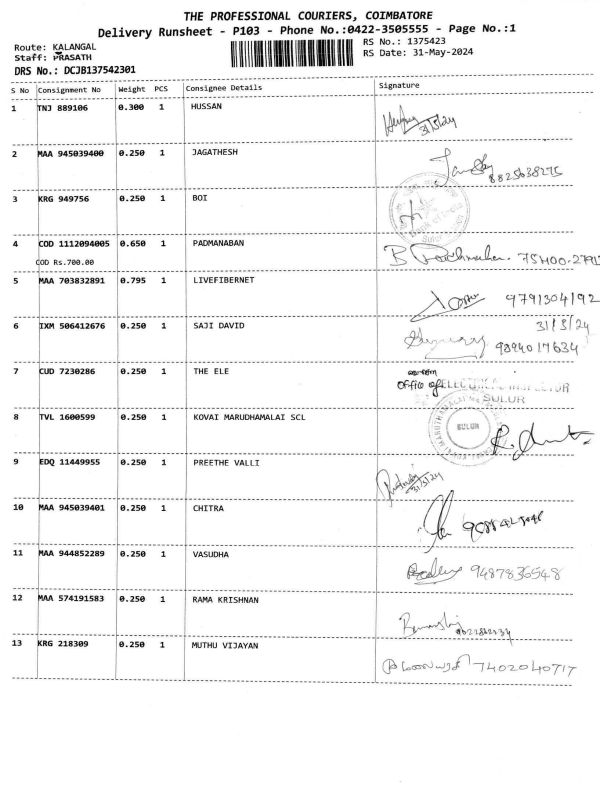 THE PROFESSIONAL COURIERS, COIMBATORE
Delivery Runsheet - P103 - Phone No.:0422-3505555 - Page No.:1
Route: KALANGAL
RS No.: 1375423
Staff: PRASATH
RS Date: 31-May-2024
DRS No.: DCJB137542301
S No Consignment No Weight PCS Consignee Details Signature
1 TNJ 889106 0.300 1 HUSSAN
31/5/24
2 MAA 945039400 0.250 1 JAGATHESH
8825638275
3 KRG 949756 0.250 1 BOI
Bank of India
Sulur
4 COD 1112094005 0.650 1 PADMANABAN
COD Rs.700.00
5 MAA 703832891 0.795 1 LIVEFIBERNET
9791304192
6 IXM 506412676 0.250 1 SAJI DAVID
31/5/24
9894017634
7 CUD 7230286 0.250 1 THE ELE
Office of ELECTRICAL INSPECTOR
SULUR
8 TVL 1600599 0.250 1 KOVAI MARUDHAMALAI SCL
SULUR
9 EDQ 11449955 0.250 1 PREETHE VALLI
31/5/24
10 MAA 945039401 0.250 1 CHITRA
11 MAA 944852289 0.250 1 VASUDHA
9487836548
12 MAA 574191583 0.250 1 RAMA KRISHNAN
13 KRG 218309 0.250 1 MUTHU VIJAYAN
7402040717